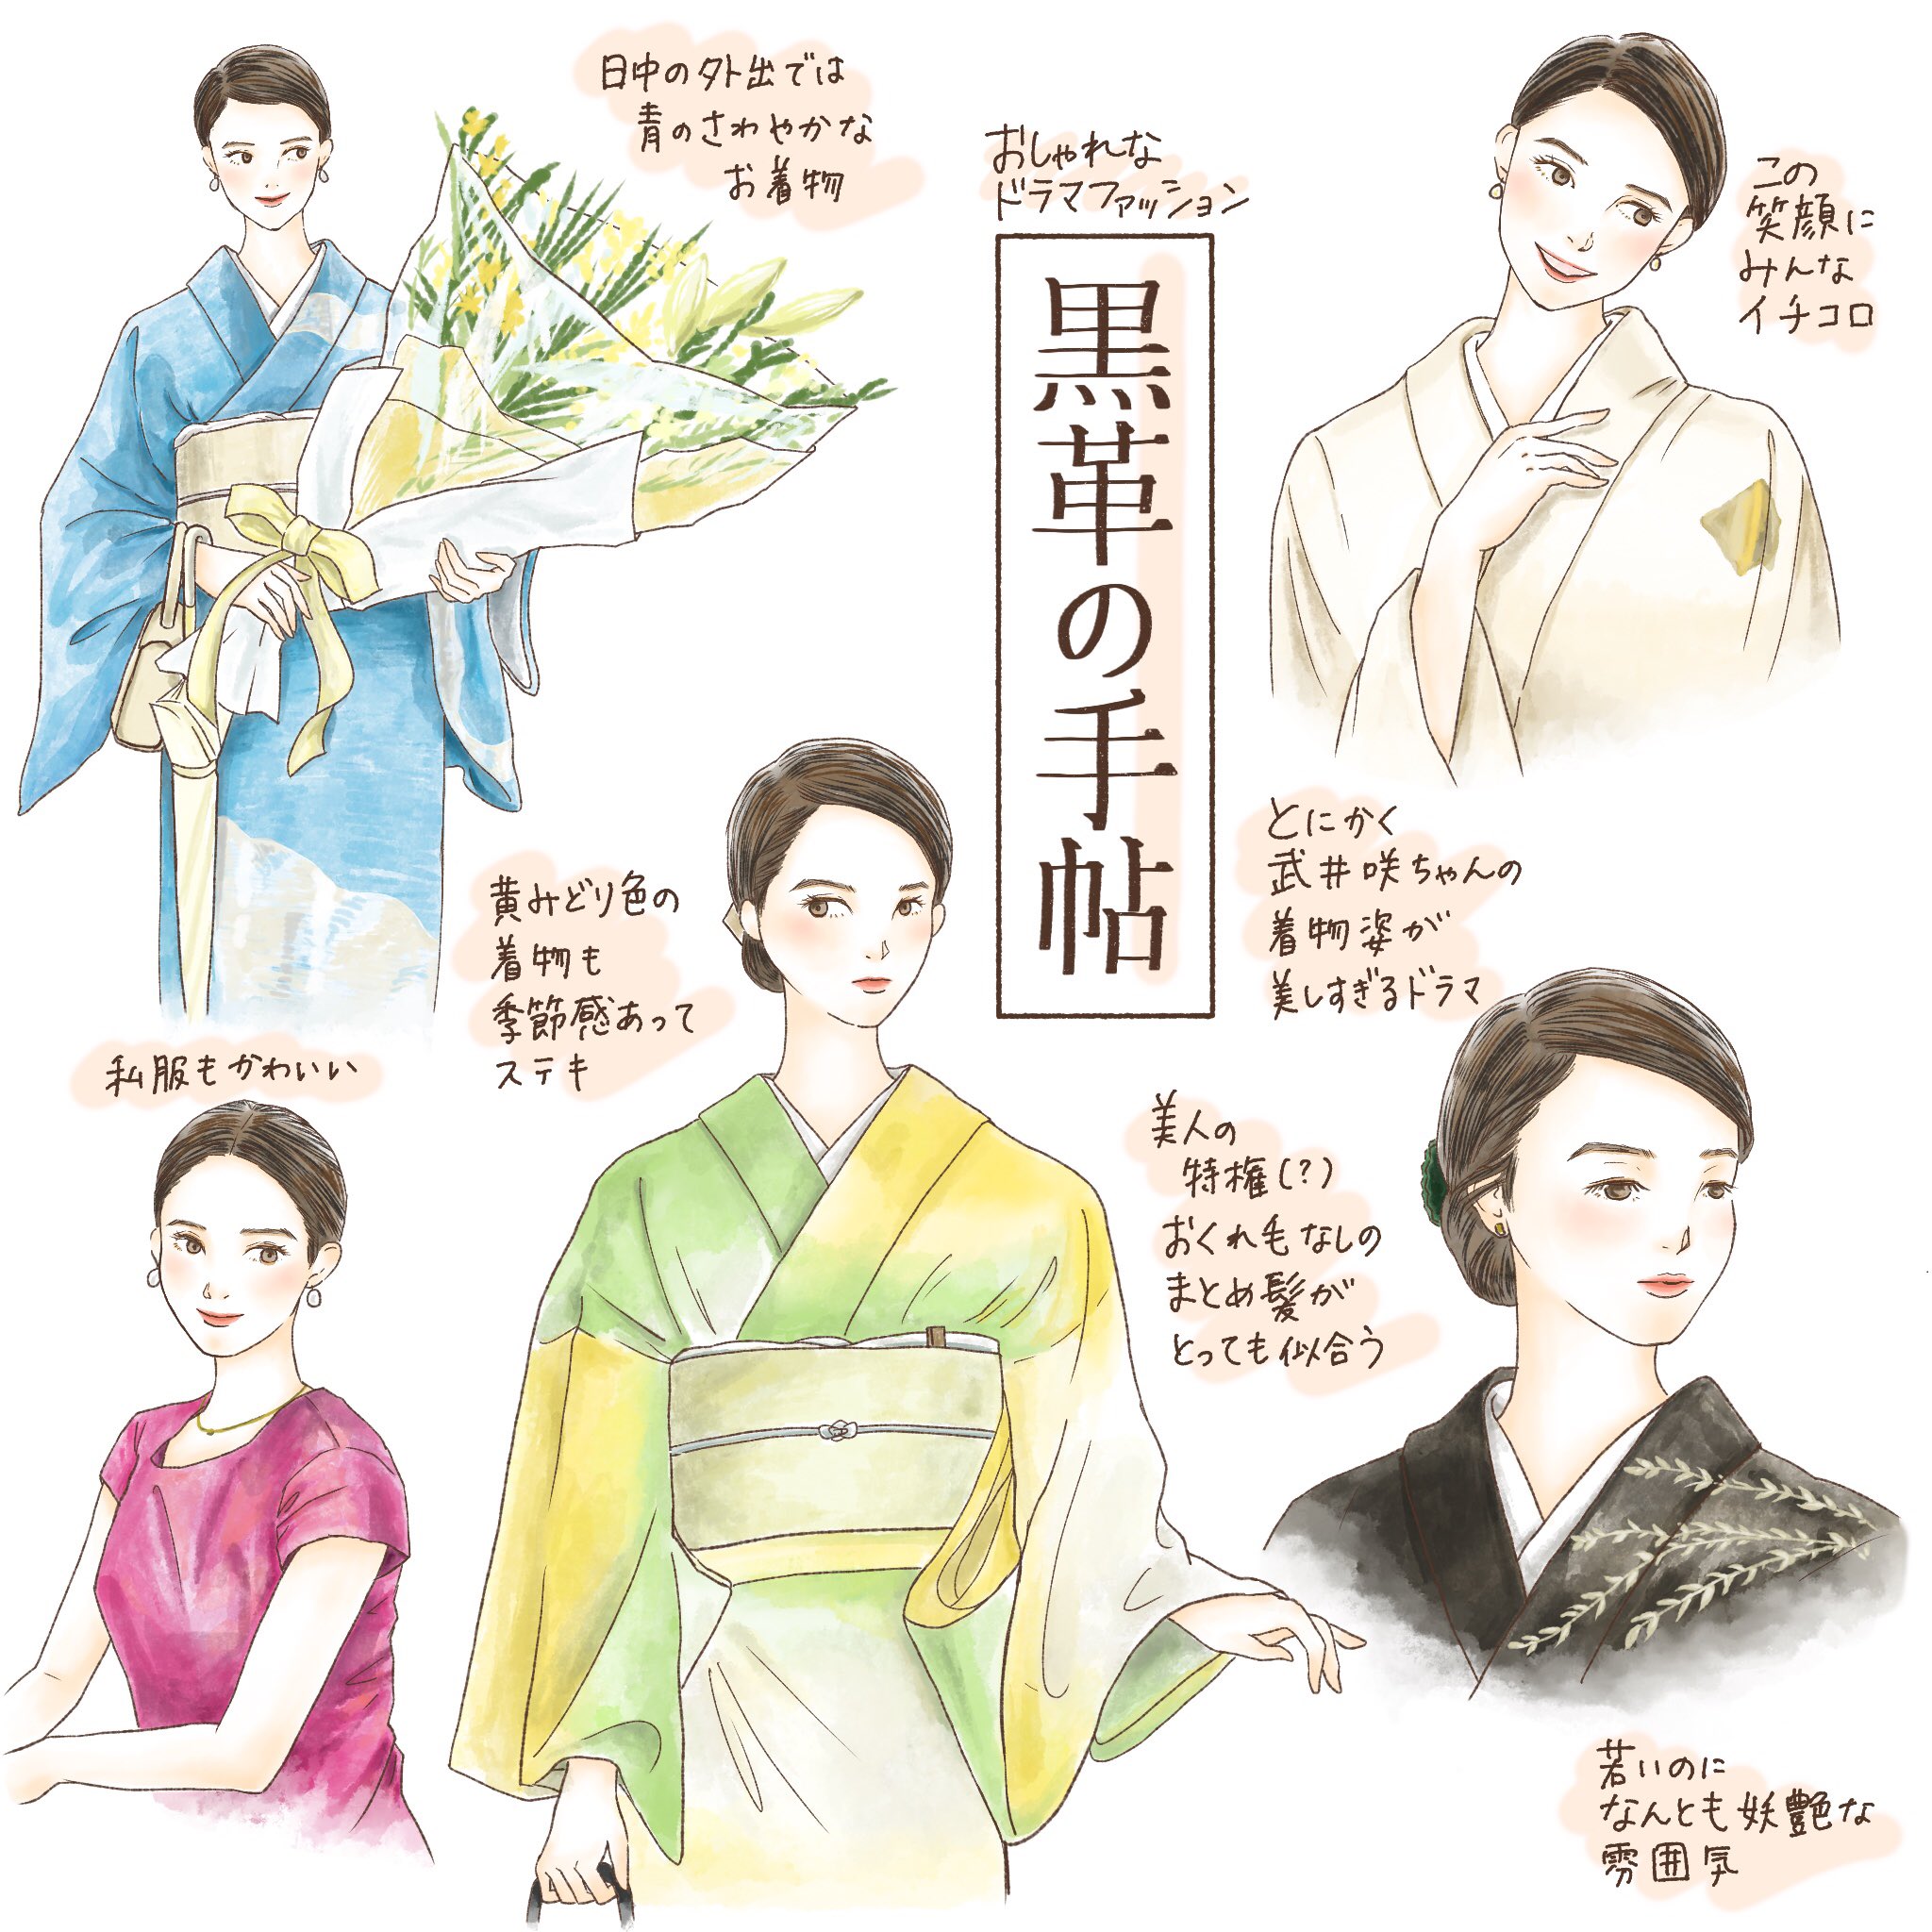 日中の外出では
青のさわやかな
お着物
おしゃれな
ドラマファッション
黒革の手帖
この
笑顔に
みんな
イチコロ
とにかく
武井咲ちゃんの
着物姿が
美しすぎるドラマ
黄みどり色の
着物も
季節感あって
ステキ
私服もかわいい
美人の
特権(?)
おくれ毛なしの
まとめ髪が
とっても似合う
若いのに
なんとも妖艶な
雰囲気